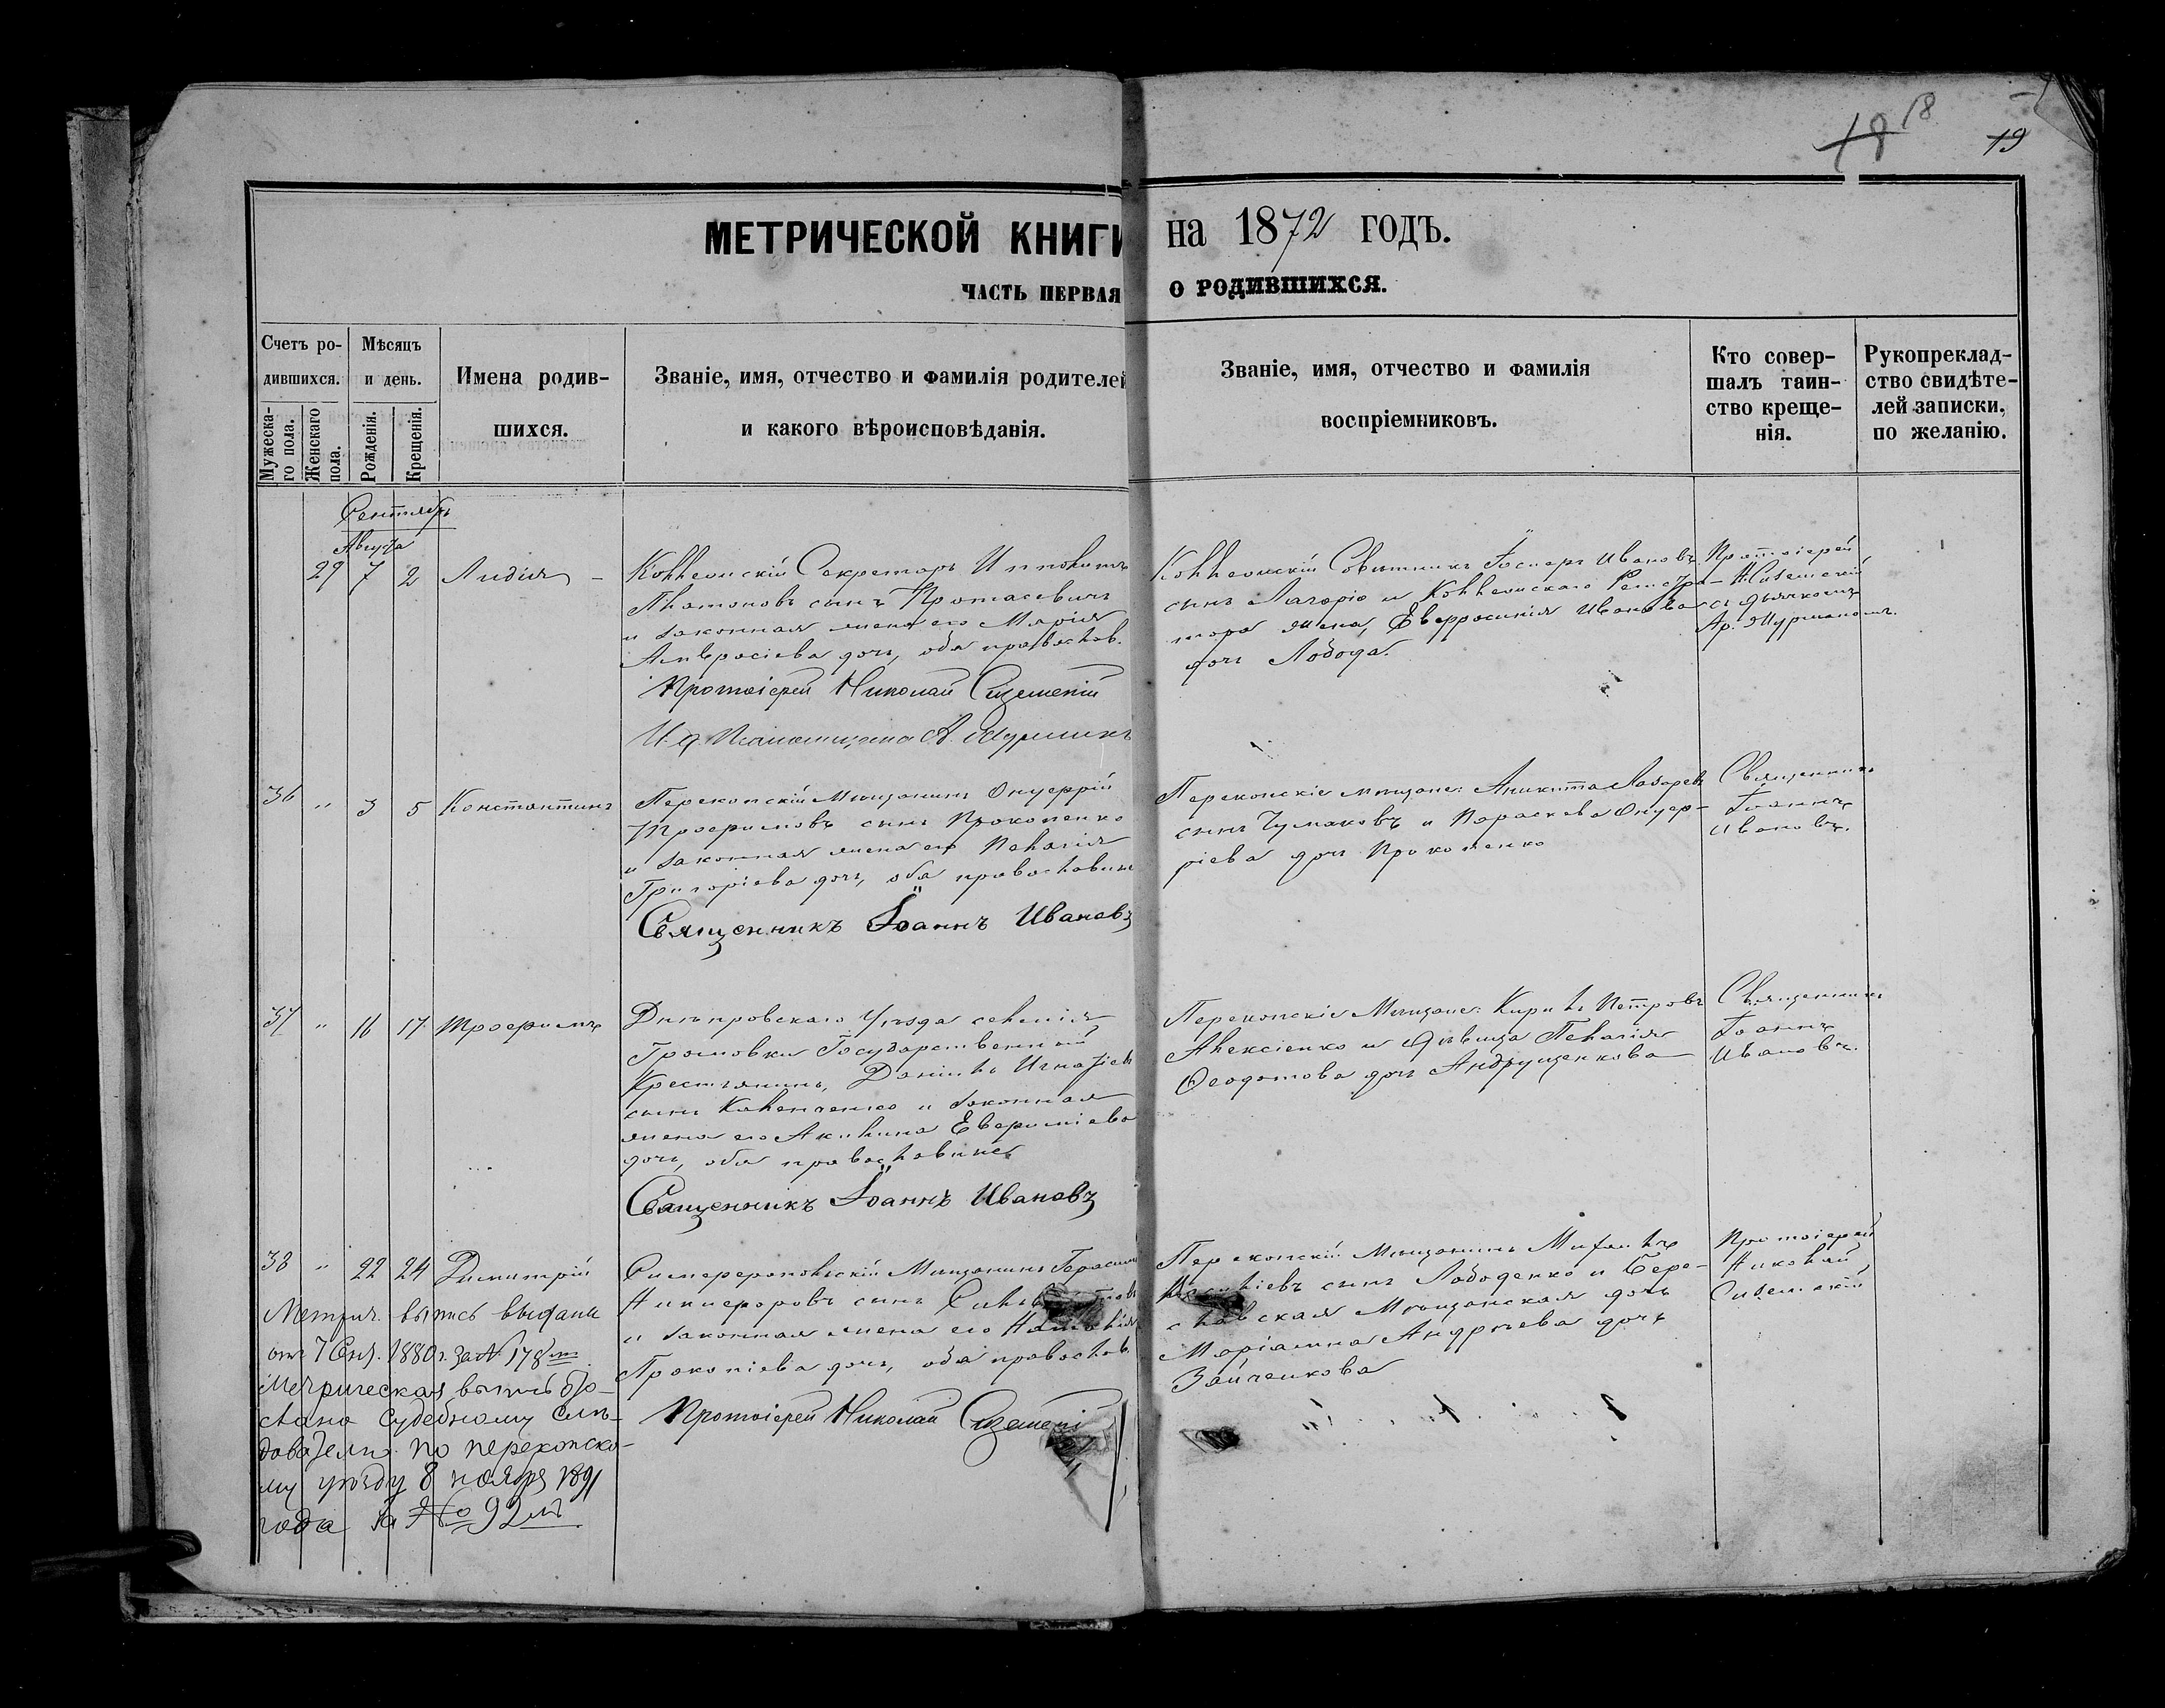 18 18 19
МЕТРИЧЕСКОЙ КНИГИ на 1872 ГОДЪ.
ЧАСТЬ ПЕРВАЯ О РОДИВШИХСЯ.
Счетъ ро-
дившихся.
Мужеска-
го пола.
Женскаго
пола.
Мѣсяцъ
и день.
Рожденія.
Крещенія.
Имена родив-
шихся.
Званіе, имя, отчество и фамилія родителей
и какого вѣроисповѣданія.
Званіе, имя, отчество и фамилія
воспріемниковъ.
Кто совер-
шалъ таин-
ство креще-
нія.
Рукоприклад-
ство свидѣте-
лей записки,
по желанію.
Сентябрь
Августа
29 7 2 Лидія
Коллежскій Секретарь Ипполитъ
Платоновъ сынъ Протасевичъ
и законная жена его Марія
Амвросіева дочь, оба православ.
Протоіерей Николай
И. д. Псаломщика А.
Коллежскій Совѣтникъ Іосифъ Ивановъ
сынъ Лагоріо и Коллежскаго Регистра-
тора жена, Евфросинія Иванова
дочь Лобода.
Протоіерей
Н.
съ дьячкомъ
Ар.
36 " 3 5 Константинъ
Перекопскій Мѣщанинъ Онуфрій
Трофимовъ сынъ Прокопенко
и законная жена его Пелагія
Григоріева дочь, оба православные
Священникъ Іоаннъ Ивановъ
Перекопскіе мѣщане: Аникита Лазаревъ
сынъ Чумаковъ и Параскева Онуф-
ріева дочь Прокопенко
Священникъ
Іоаннъ
Ивановъ.
37 " 16 17 Трофимъ
Днѣпровскаго Уѣзда селенія
Громовки Государственный
Крестьянинъ, Даніилъ Игнатіевъ
сынъ и законная
жена его Акилина Евфиміева
дочь, оба православные
Священникъ Іоаннъ Ивановъ
Перекопскіе Мѣщане: Кирилъ Петровъ
Алексіенко и Дѣвица Пелагія
Феодотова дочь Андрущенкова
Священникъ
Іоаннъ
Ивановъ.
38 " 22 24 Димитрій
Симферопольскій Мѣщанинъ Герасимъ
Никифоровъ сынъ
и законная жена его Наталія
Прокопіева дочь, оба православ.
Протоіерей Николай
Перекопскій Мѣщанинъ Михаилъ
сынъ Лободенко и Бере-
славская Мѣщанская дочь
Маріамна Андреева дочь
Зайченкова
Протоіерей
Николай
Метрич. выпись выдана
отъ 7 Сент. 1880 г. за № 178мъ
Метрическая выпись ото-
слана Судебному Слѣ-
дователю по перекопско-
му уѣзду 8 ноября 1891
года за № 92мъ